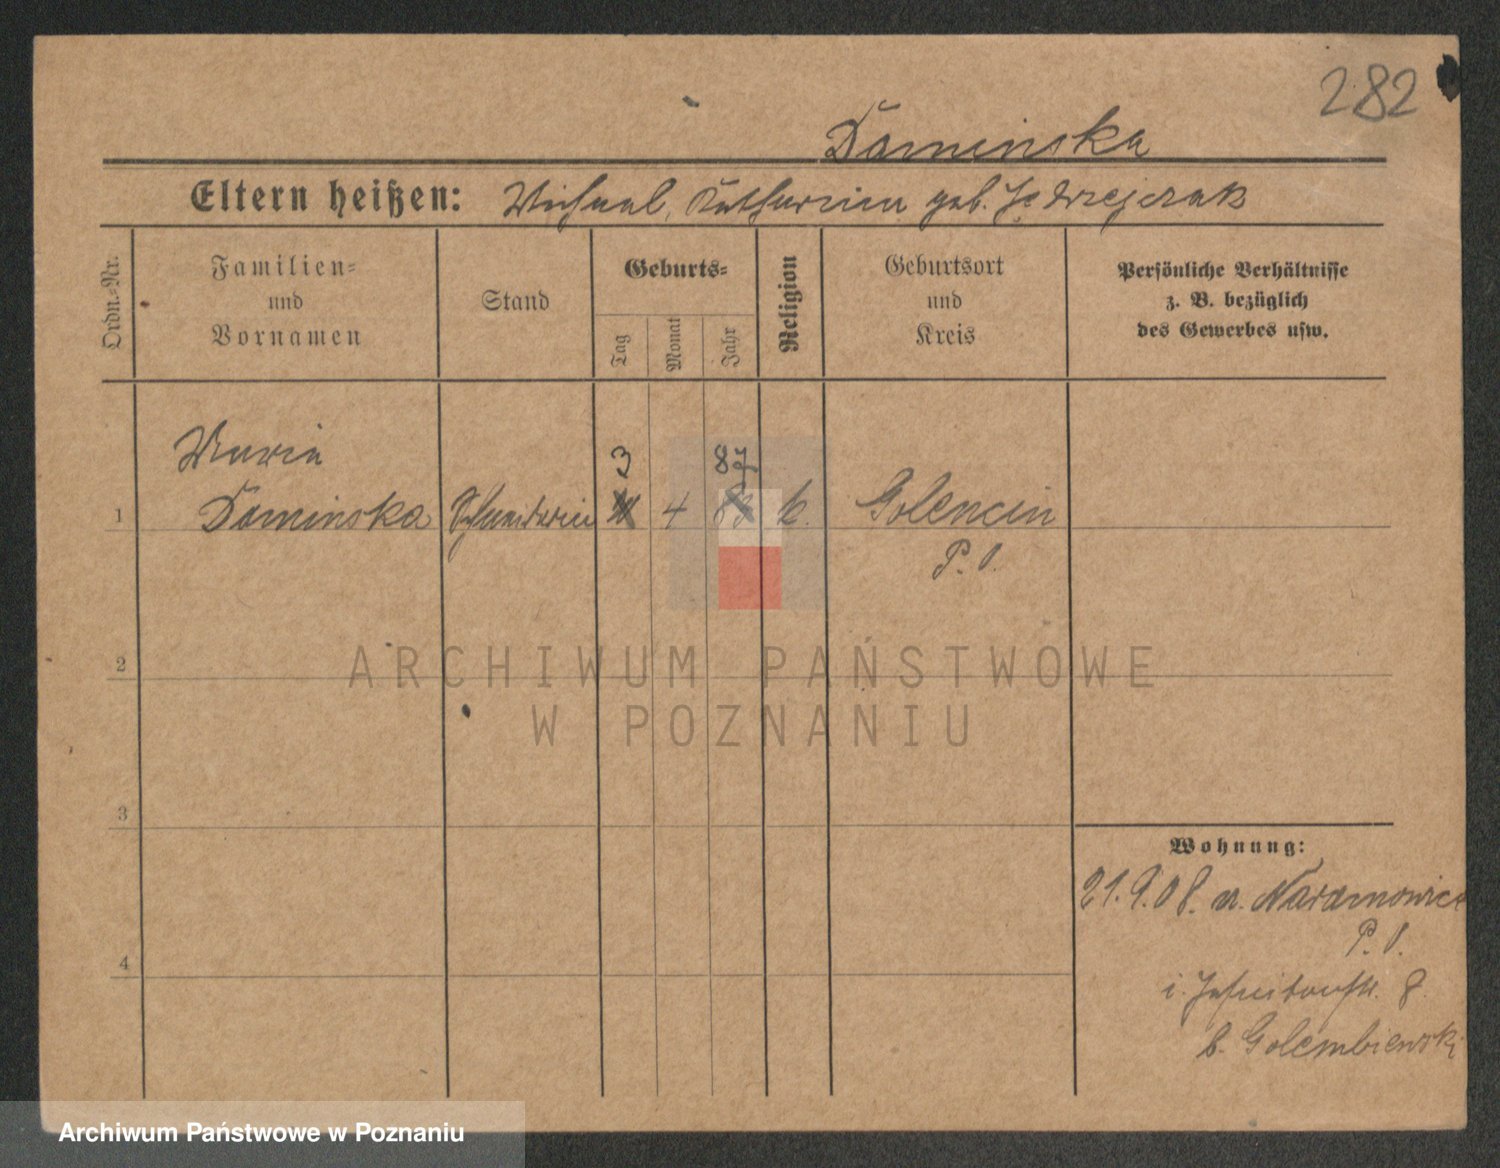 282
Daminska
Eltern heißen: Michael, Katharina geb. Jedrzejczak
Ordn.-Nr.
Familien-
und
Vornamen
Stand
Geburts-
Tag
Monat
Jahr
Religion
Geburtsort
und
Kreis
Persönliche Verhältnisse
z. B. bezüglich
des Gewerbes usw.
Maria
3
87
1
Daminska
Schneiderin
4
83
k.
Golencin
P. O.
2
ARCHIWUM PAŃSTWOWE
W POZNANIU
3
Wohnung:
21.9.08. n. Naramowice
P. O.
4
i. Jesuitenstr. 8
b. Golembiewski
Archiwum Państwowe w Poznaniu